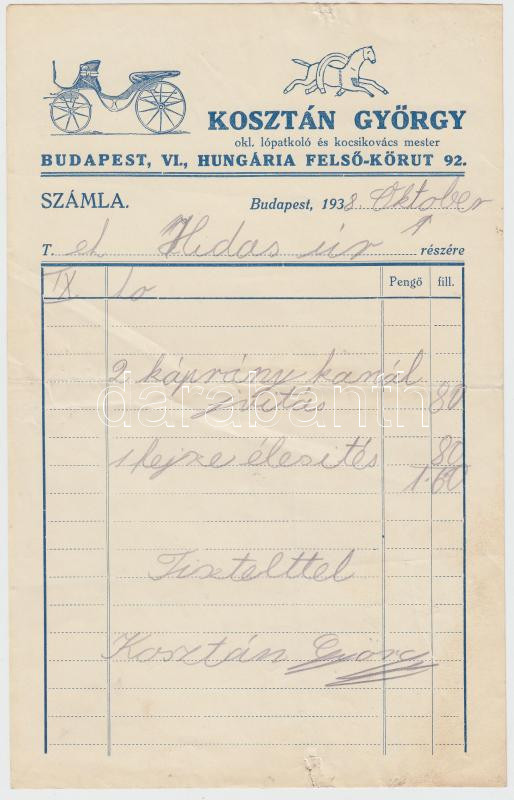 KOSZTÁN GYÖRGY
okl. lópatkoló és kocsikovács mester
BUDAPEST, VI., HUNGÁRIA FELSŐ-KÖRUT 92.
SZÁMLA.
Budapest, 1938. Október 1
T. et Hidas úr részére
IX 10 Pengő fill.
2 káprány kanál
javitás 80
1 fejze élesités 80
1.60
Tisztelttel
Kosztán György
darabanth